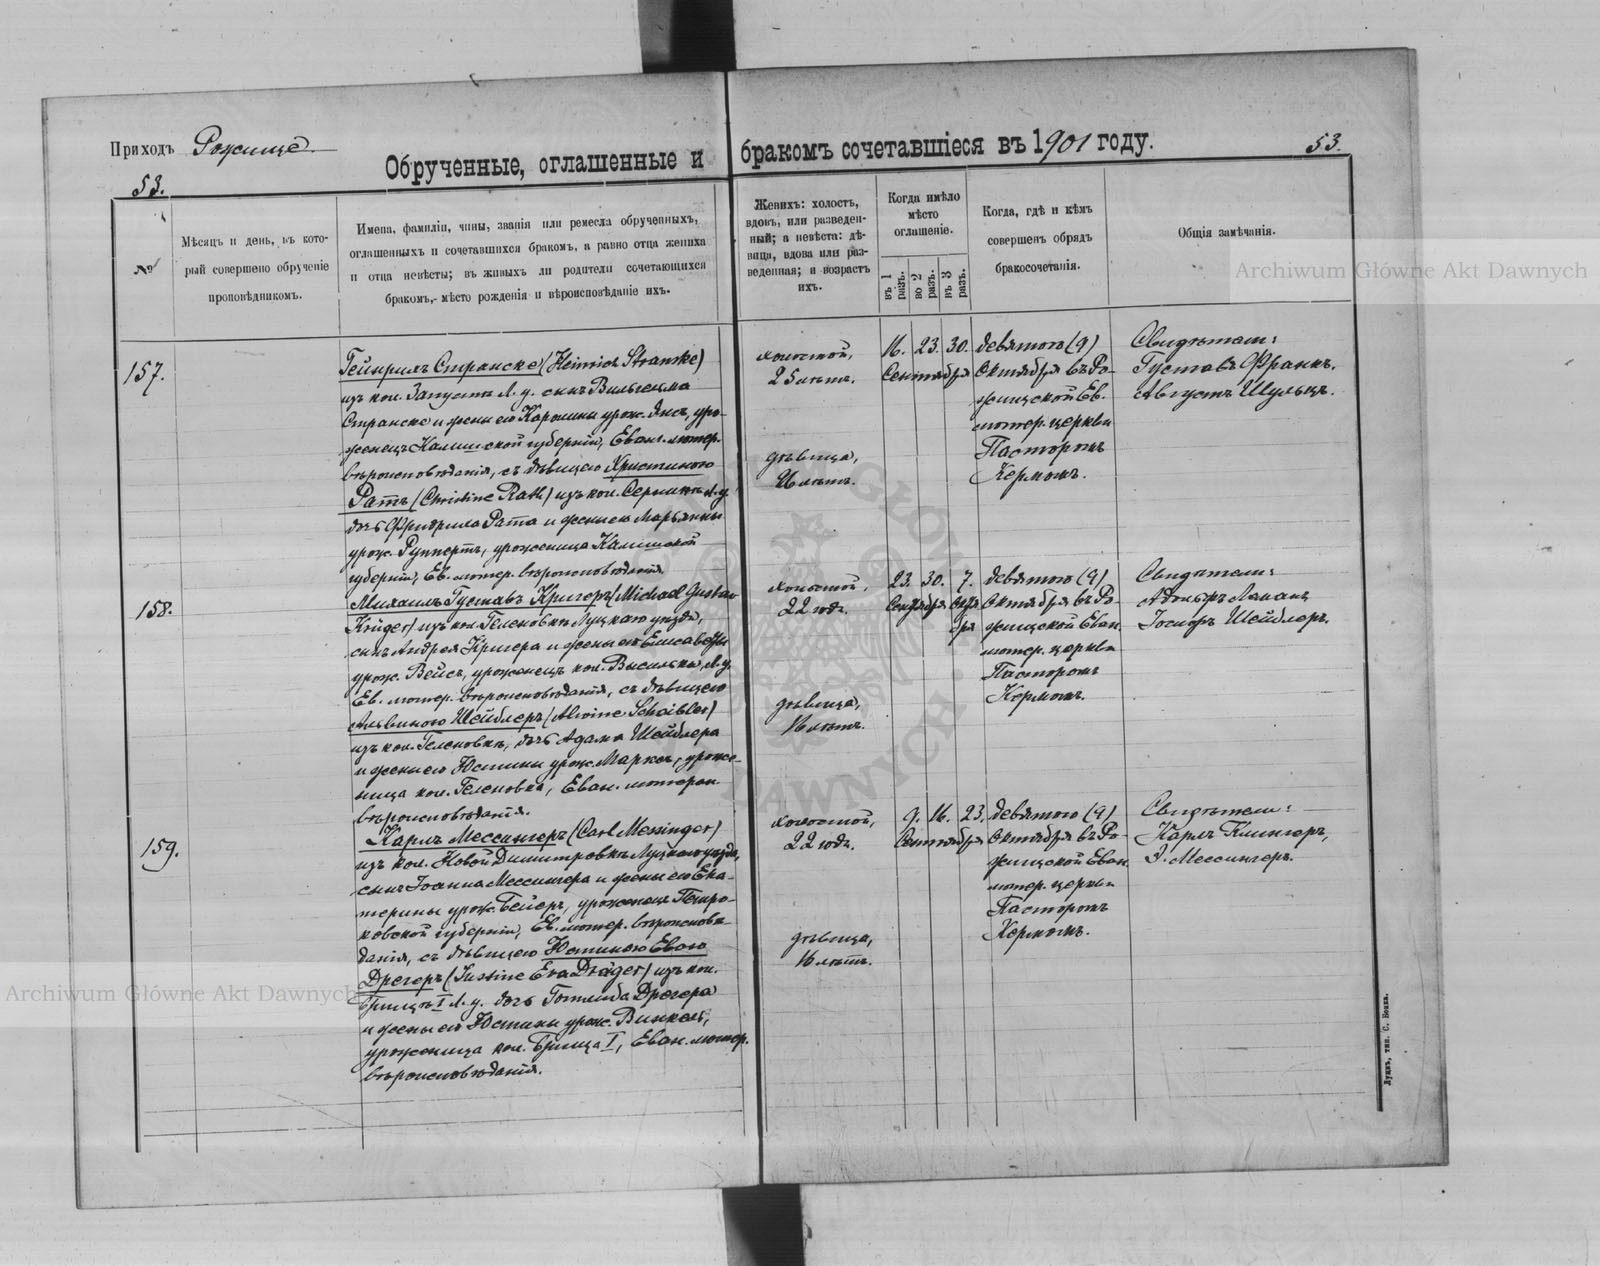 Приходъ Рожище
53.
Обрученные, оглашенные и бракомъ сочетавшіеся въ 1901 году.
53.
№
Мѣсяцъ и день, въ кото-
рый совершено обрученіе
проповѣдникомъ.
Имена, фамиліи, чины, званія или ремесла обрученныхъ,
оглашенныхъ и сочетавшихся бракомъ, а равно отца жениха
и отца невѣсты; въ живыхъ ли родители сочетающихся
бракомъ, мѣсто рожденія и вѣроисповѣданіе ихъ.
Женихъ: холостъ,
вдовъ, или разведен-
ный; а невѣста: дѣ-
вица, вдова или раз-
веденная; и возрастъ
ихъ.
Когда имѣло
мѣсто
оглашеніе.
въ 1 разъ.
во 2 разъ.
въ 3 разъ.
Когда, гдѣ и кѣмъ
совершенъ обрядъ
бракосочетанія.
Общія замѣчанія.
157.
Гейнрихъ Странске (Heinrich Stranske)
изъ кол. Запустъ Л. у. сынъ Вильгельма
Странске и жены его Каролины урож. уро-
женецъ Калишской губерніи, Еван. лютер.
вѣроисповѣданія, съ дѣвицею Христиною
Ратъ (Christine Rath) изъ кол. Л. у.
дочь Фридриха Рата и жены его Марьянны
урож. Руппертъ, уроженица Калишской
губерніи, Ев. лютер. вѣроисповѣданія
холостой,
25 лѣтъ.
дѣвица,
лѣтъ.
16. 23. 30.
Сентября
девятого (9)
Октября въ Ро-
жищской Ев.
лютер. церкви
Пасторомъ
Кермомъ.
Свидѣтели:
Густавъ Франкъ.
Августъ Шульцъ.
158.
Михаилъ Густавъ Кригеръ (Michael Gustav
Krüger) изъ кол. Геленовка Луцкаго уѣзда,
сынъ Андрея Кригера и жены его Елисаветы
урож. Вейсъ, уроженецъ кол. Л. у.
Ев. лютер. вѣроисповѣданія, съ дѣвицею
Альвиною Шейблеръ (Alwine Scheibler)
изъ кол. Геленовка, дочь Адама Шейблера
и жены его Юстины урож. Марксъ, уроже-
ница кол. Геленовка, Еван. лютеран.
вѣроисповѣданія.
холостой,
22 годъ.
дѣвица,
лѣтъ.
23. 30. 7.
Сентября Октя-
бря
девятого (9)
Октября въ Ро-
жищской Еван.
лютер. церкви
Пасторомъ
Кермомъ.
Свидѣтели:
Адольфъ
Іосифъ Шейблеръ.
159.
Карлъ Мессингеръ (Carl Messinger)
изъ кол. Новой Димитровкѣ Луцкаго уѣзда,
сынъ Іоанна Мессингера и жены его Ека-
терины урож. Бейеръ, уроженецъ Петро-
ковской губерніи, Ев. лютер. вѣроисповѣ-
данія, съ дѣвицею Юстиною Евою
Дрегеръ (Justine Eva Dräger) изъ кол.
Брища I Л. у. дочь Готлиба Дрегера
и жены его Юстины урож. Винкель,
уроженица кол. Брища I, Еван. лютер.
вѣроисповѣданія.
холостой,
22 годъ.
дѣвица,
лѣтъ.
9. 16. 23.
Сентября
девятого (9)
Октября въ Ро-
жищской Еван.
лютер. церкви
Пасторомъ
Кермомъ.
Свидѣтели:
Карлъ Клингеръ,
Э. Мессингеръ.
Луцкъ, тип. С. Бенка.
Archiwum Główne Akt Dawnych
Archiwum Główne Akt Dawnych